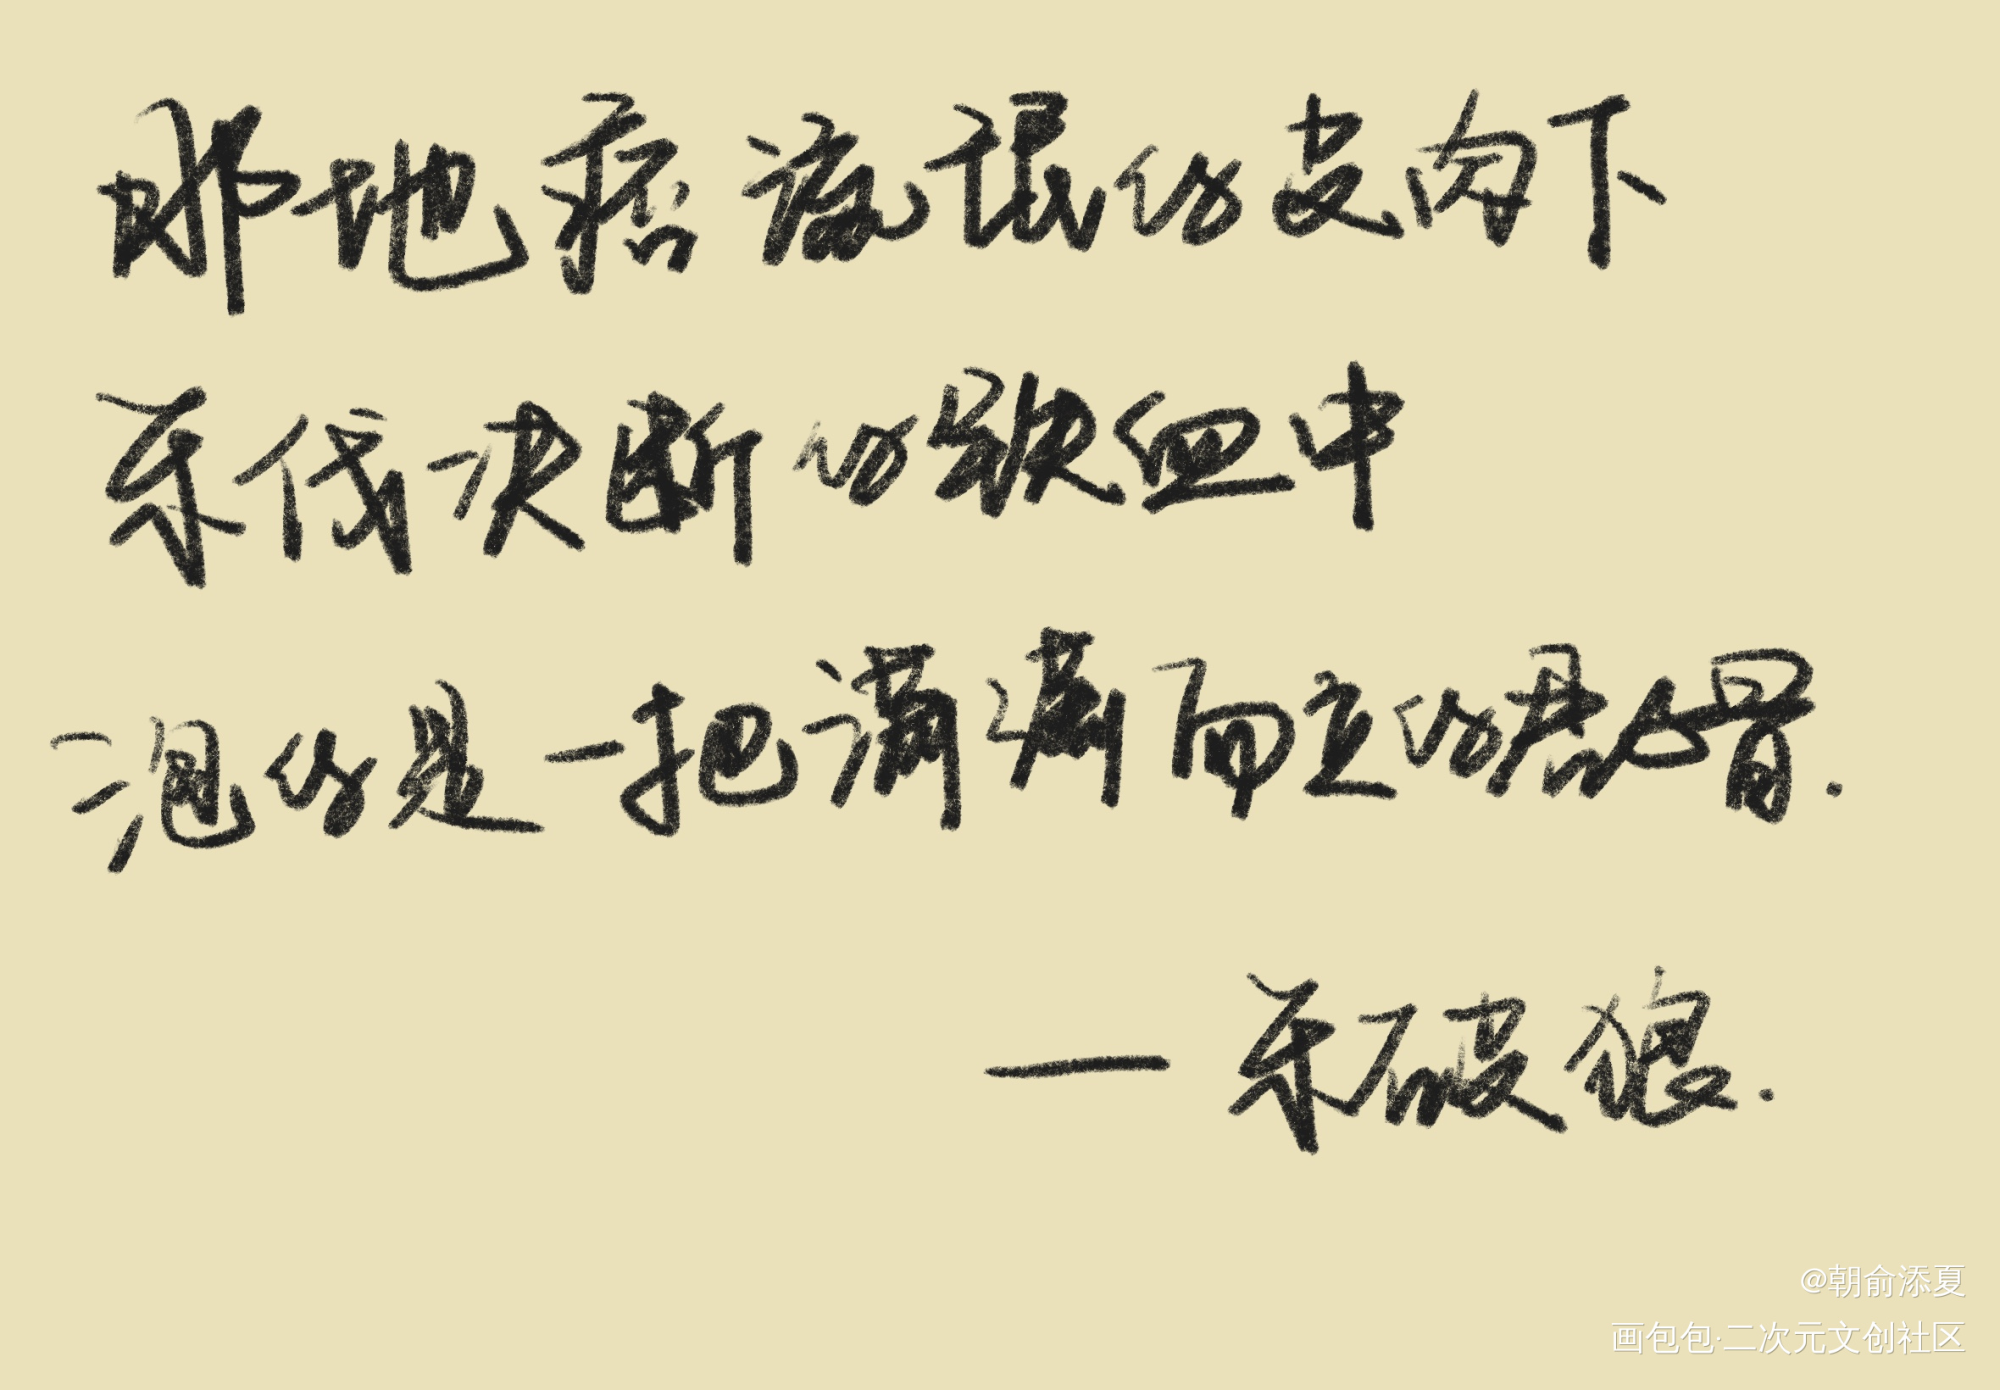 那地痞流氓的皮肉下
杀伐决断的铁血中
泡的是一把潇潇而立的君心骨.
— 杀破狼.
@朝俞添夏
画包包·二次元文创社区